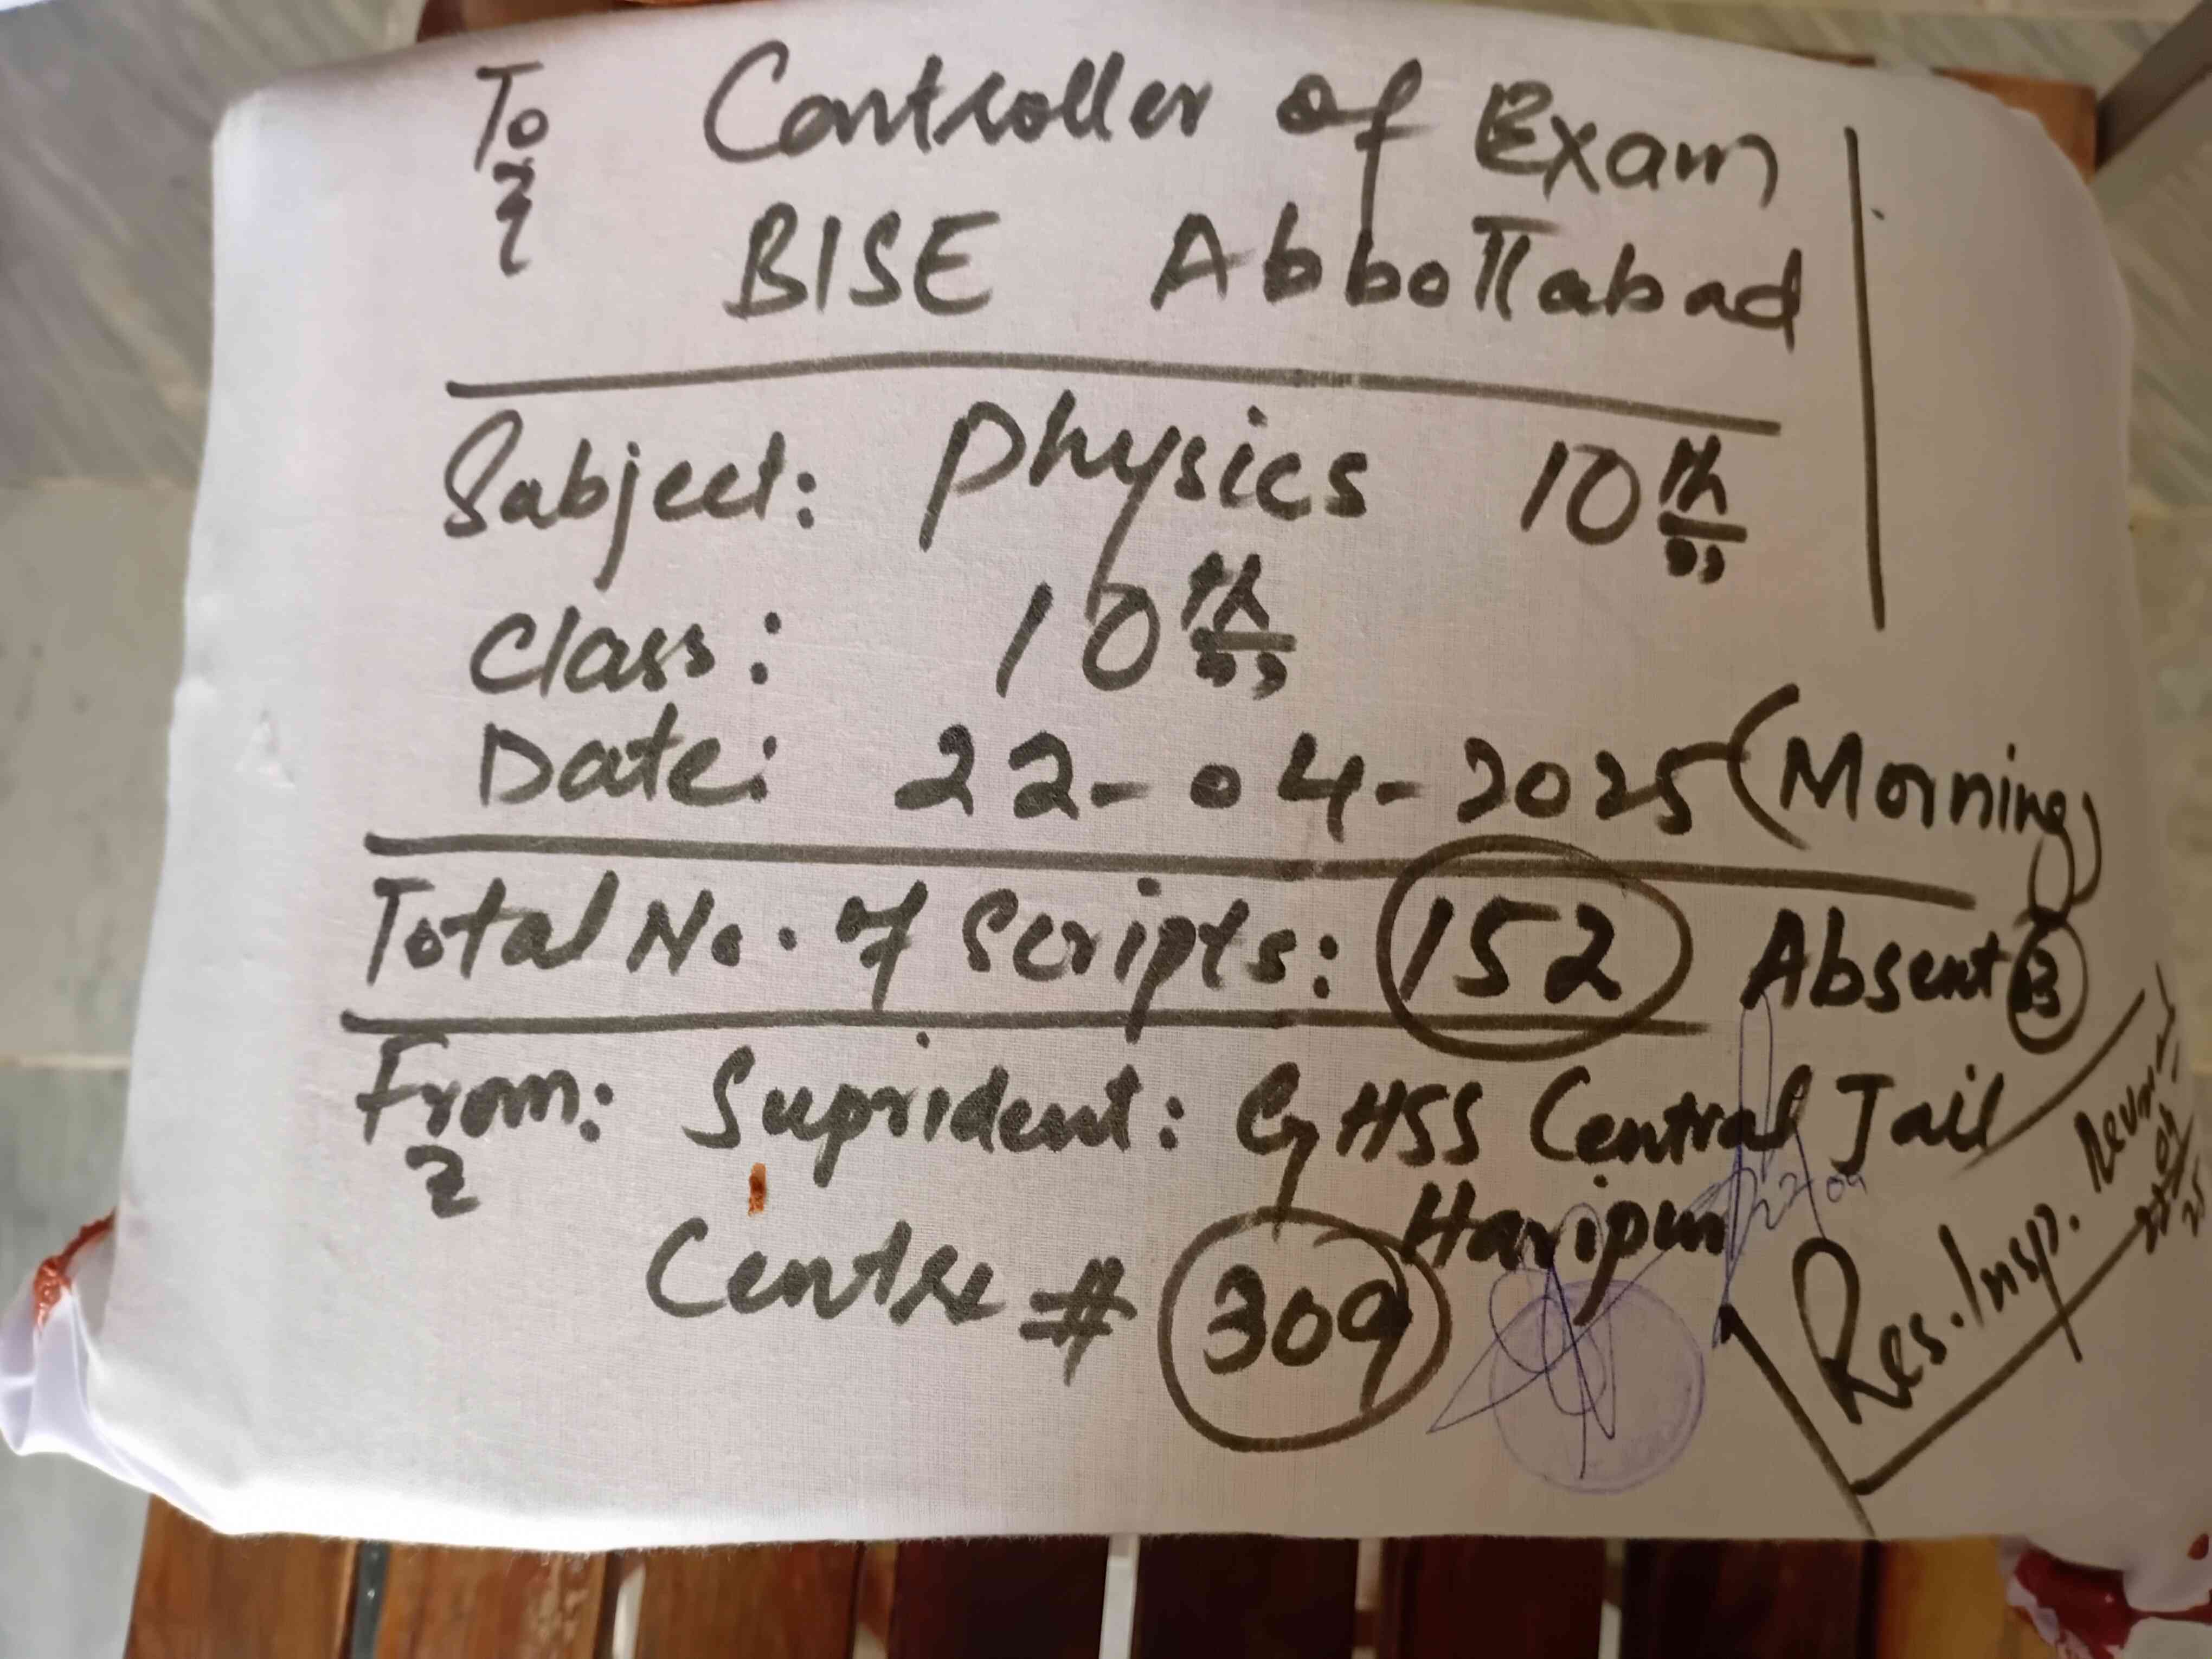 To Controller of Exam
BISE Abbottabad
Subject: Physics 10th
Class: 10th
Date: 22-04-2025 (Morning)
Total No. of Scripts: 152 Absent
From: Suprident: GHSS Central Jail
Haripur
Centre # 309
Res. Insp.